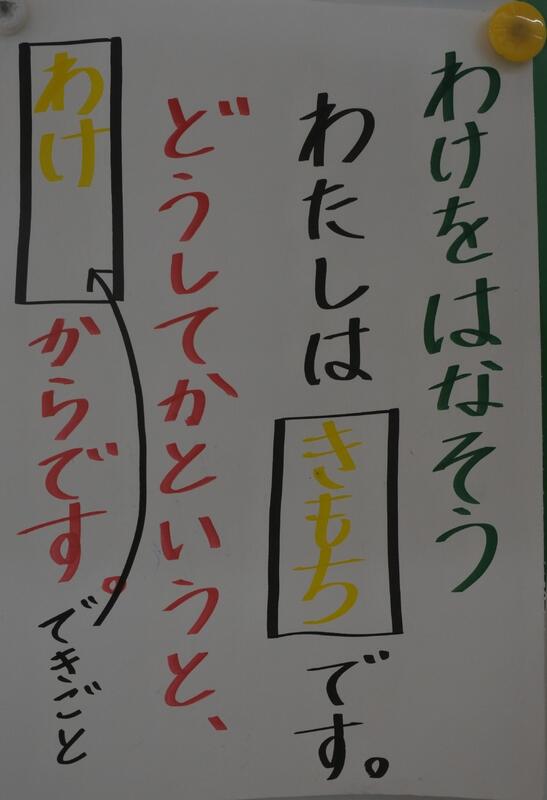 わけをはなそう
わたしはきもちです。
どうしてかというと、
わけからです。
できごと